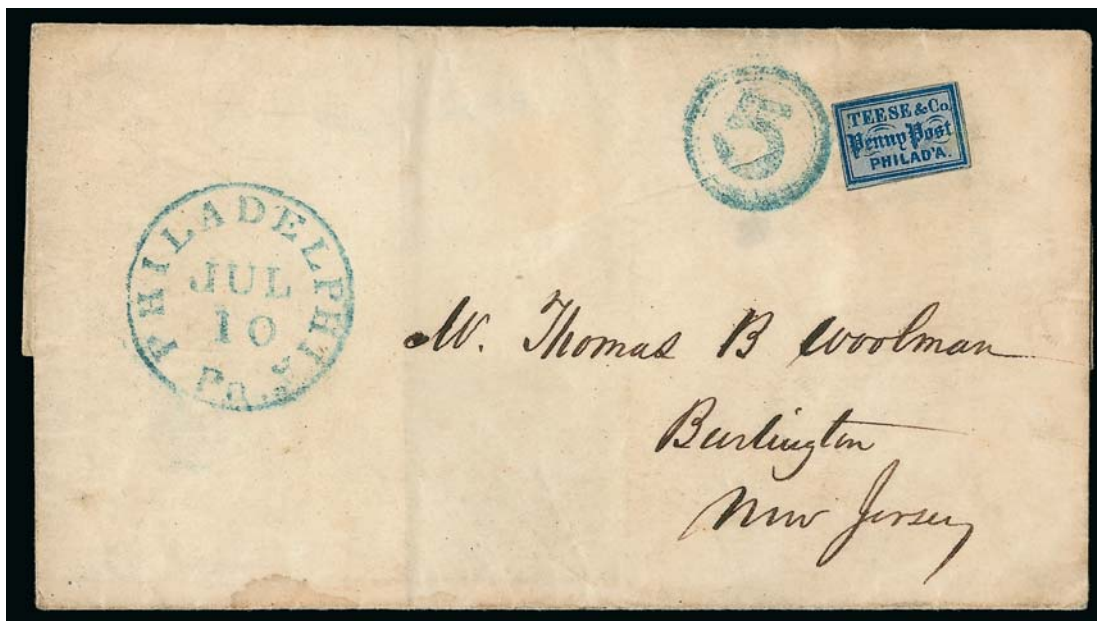 5
TEESE & Co.
Penny Post
PHILAD'A.
PHILADELPHIA
JUL
10
Pa.
5
M. Thomas B Woolman
Burlington
New Jersey